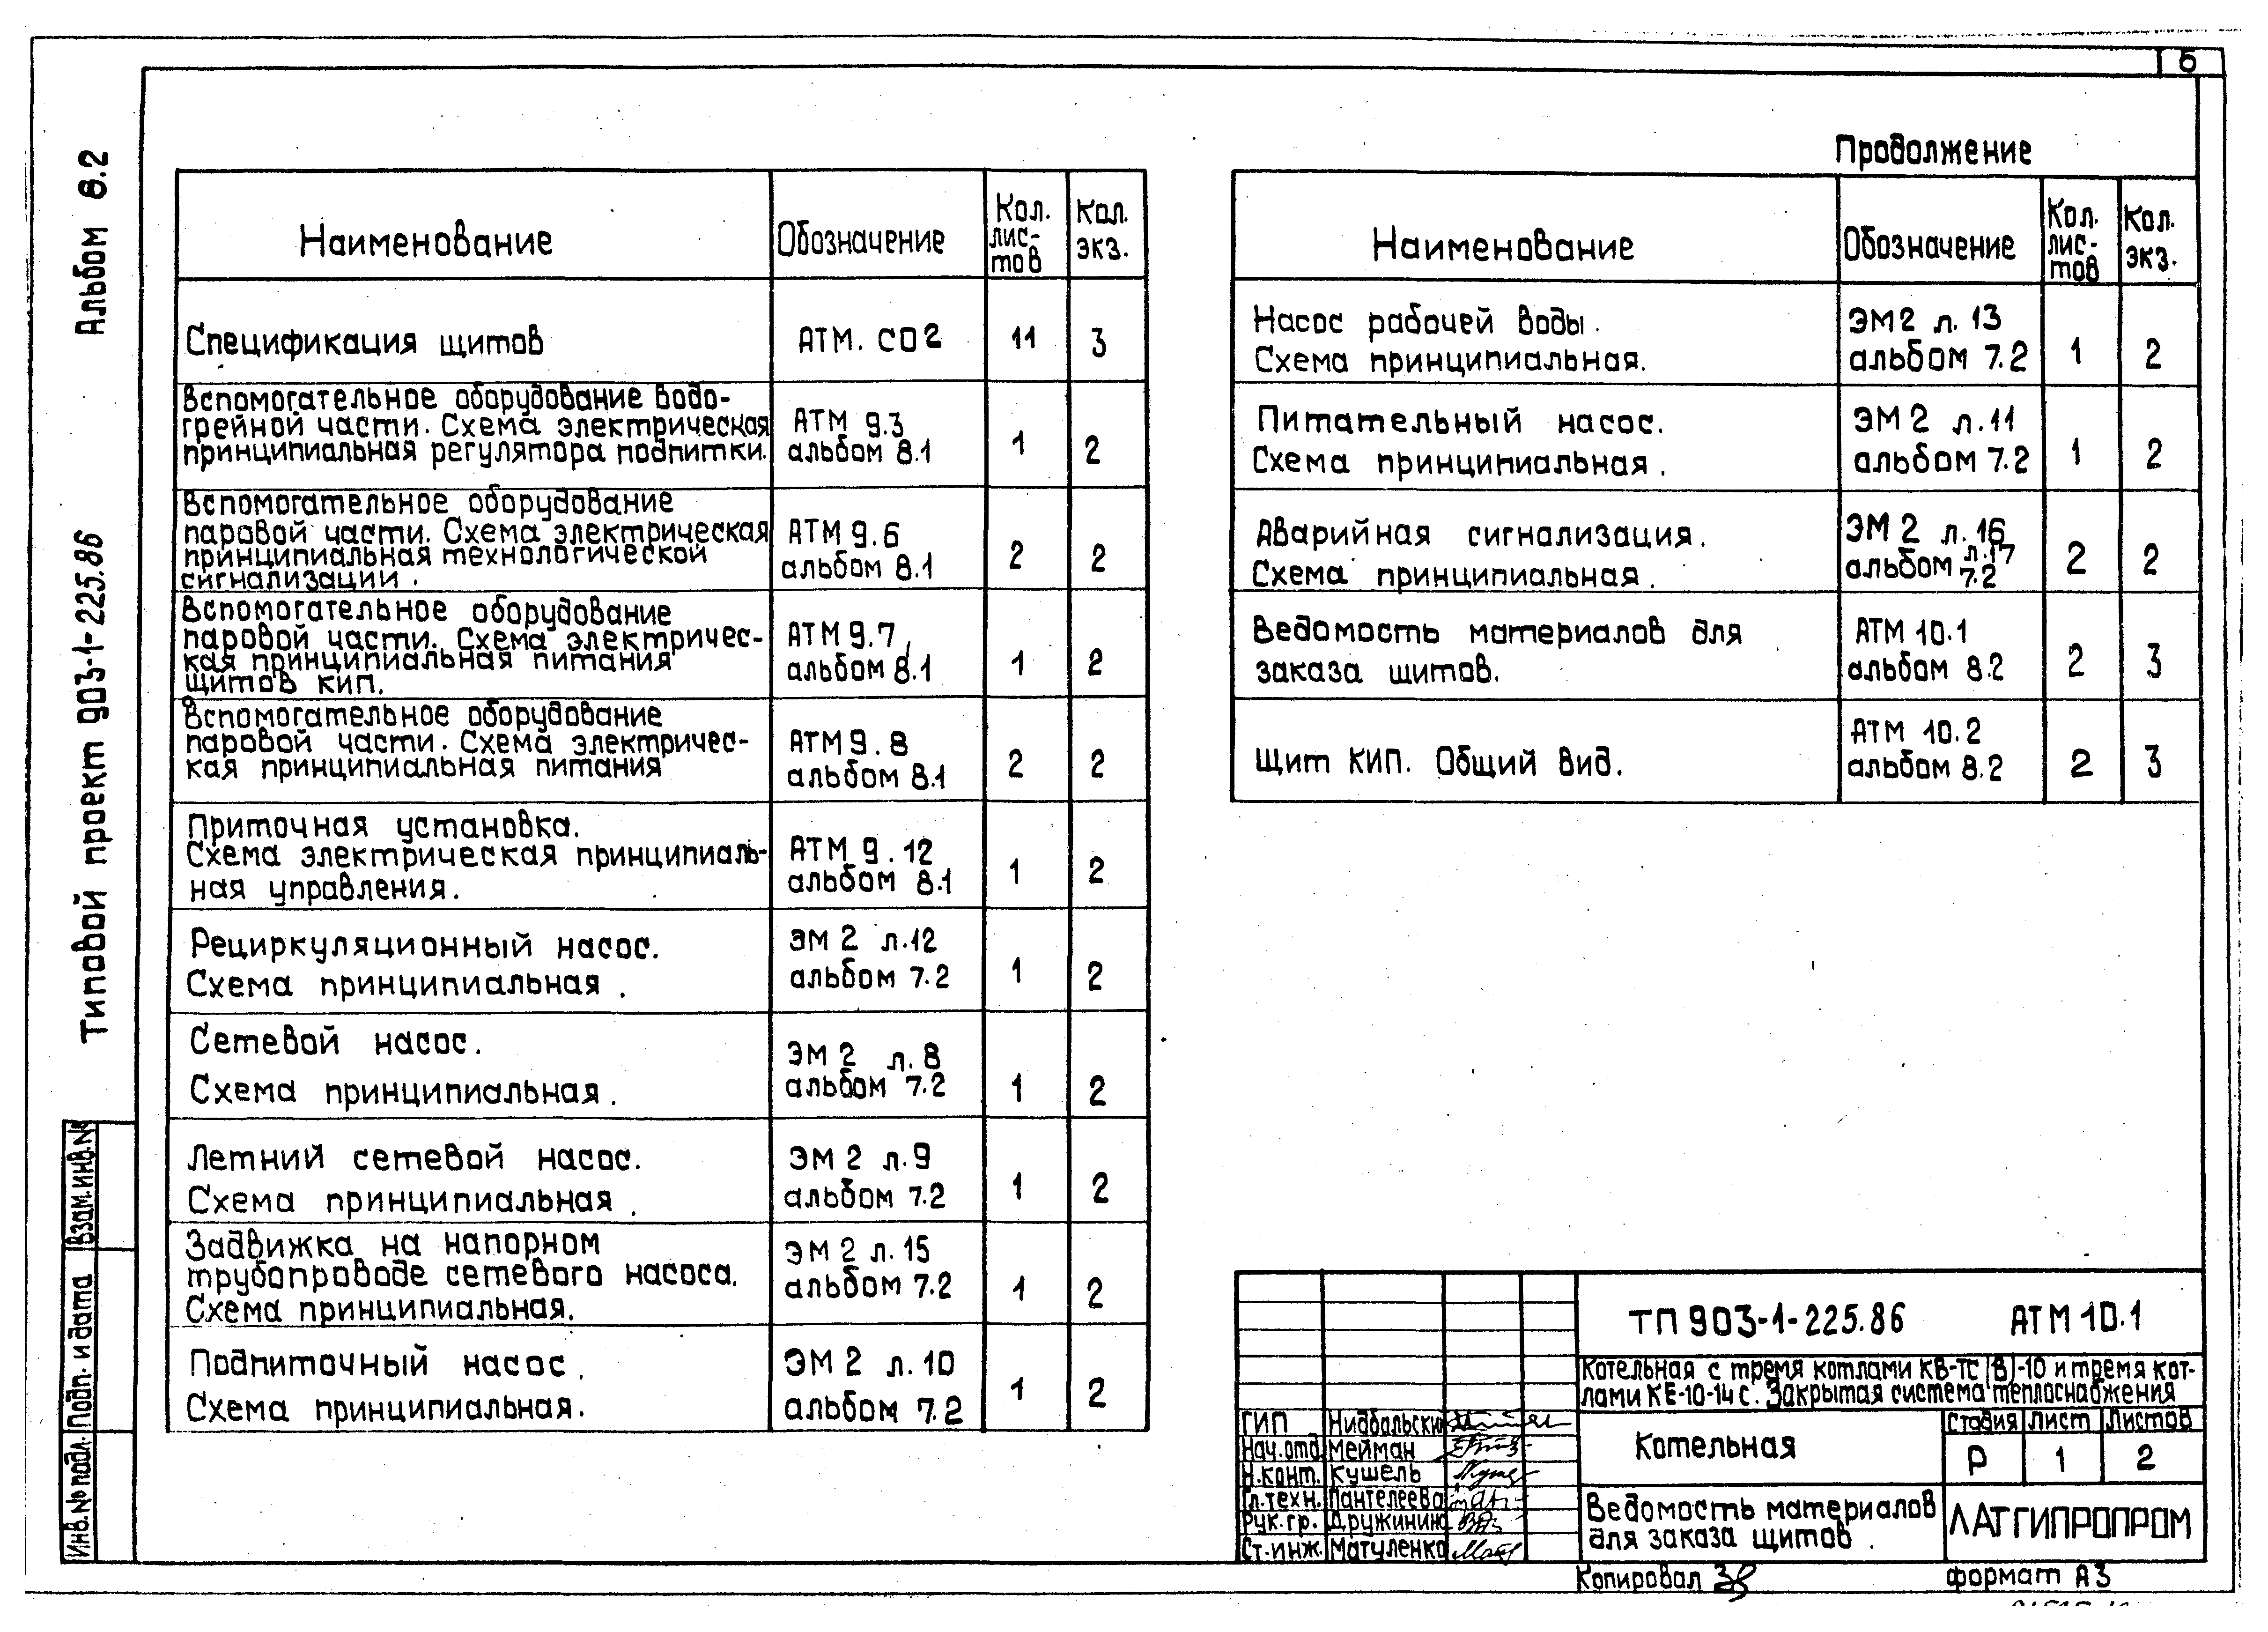 5
Альбом 8.2
Типовой проект 903-1-225.86
Взам.инв.№
Подп. и дата
Инв.№ подл.
Наименование
Обозначение
Кол.
лис-
тов
Кол.
экз.
Спецификация щитов
АТМ. СО2
11
3
Вспомогательное оборудование водо-
грейной части. Схема электрическая
принципиальная регулятора подпитки.
АТМ 9.3
альбом 8.1
1
2
Вспомогательное оборудование
паровой части. Схема электрическая
принципиальная технологической
сигнализации.
АТМ 9.6
альбом 8.1
2
2
Вспомогательное оборудование
паровой части. Схема электричес-
кая принципиальная питания
щитов КИП.
АТМ 9.7,
альбом 8.1
1
2
Вспомогательное оборудование
паровой части. Схема электричес-
кая принципиальная питания
АТМ 9.8
альбом 8.1
2
2
Приточная установка.
Схема электрическая принципиаль-
ная управления.
АТМ 9.12
альбом 8.1
1
2
Рециркуляционный насос.
Схема принципиальная.
ЭМ 2 л.12
альбом 7.2
1
2
Сетевой насос.
Схема принципиальная.
ЭМ 2 л.8
альбом 7.2
1
2
Летний сетевой насос.
Схема принципиальная.
ЭМ 2 л.9
альбом 7.2
1
2
Задвижка на напорном
трубопроводе сетевого насоса.
Схема принципиальная.
ЭМ 2 л.15
альбом 7.2
1
2
Подпиточный насос.
Схема принципиальная.
ЭМ 2 л.10
альбом 7.2
1
2
Продолжение
Наименование
Обозначение
Кол.
лис-
тов
Кол.
экз.
Насос рабочей воды.
Схема принципиальная.
ЭМ2 л.13
альбом 7.2
1
2
Питательный насос.
Схема принципиальная.
ЭМ 2 л.11
альбом 7.2
1
2
Аварийная сигнализация.
Схема принципиальная.
ЭМ 2 л.16
л.17
альбом 7.2
2
2
Ведомость материалов для
заказа щитов.
АТМ 10.1
альбом 8.2
2
3
Щит КИП. Общий вид.
АТМ 10.2
альбом 8.2
2
3
ТП 903-1-225.86 АТМ 10.1
Котельная с тремя котлами КВ-ТС(В)-10 и тремя кот-
лами КЕ-10-14с. Закрытая система теплоснабжения
ГИП Нидбальский
Нач.отд. Мейман
Н.конт. Кушель
Гл.техн. Пантелеева
Рук.гр. Дружинина
Ст.инж. Матуленко
Котельная
Стадия Лист Листов
Р 1 2
Ведомость материалов
для заказа щитов.
ЛАТГИПРОПРОМ
Копировал
формат А3